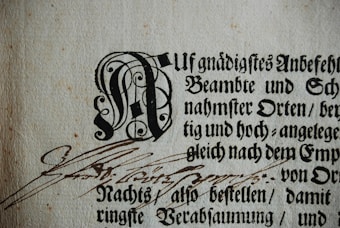 AUf gnädigstes Anbefehl
Beambte und Sch
nahmster Orten/ bey
tig und hoch-angelege
gleich nach dem Emp
von Or
Nachts/ also bestellen/ damit
ringste Verabsaumung/ und